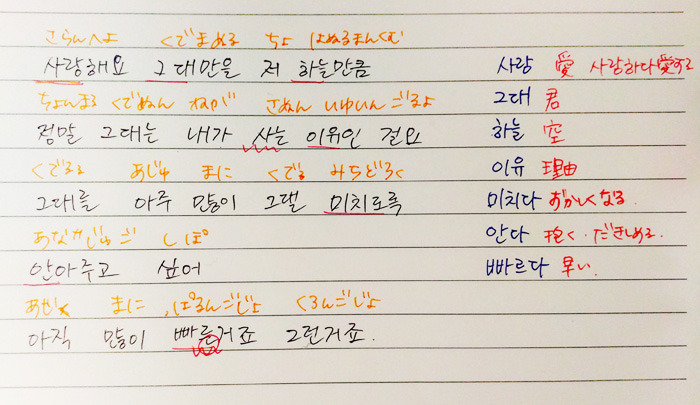 さらんへよ くでまぬる ちょ はぬるまんくむ
사랑해요 그대만을 저 하늘만큼
ちょんまる くでぬん ねが さぬん いゆいん ごるよ
정말 그대는 내가 사는 이유인 걸요
くでるる あじゅ まに くでる みちどろく
그대를 아주 많이 그댈 미치도록
あなじゅご しぽ
안아주고 싶어
あじく まに ぱるんごじょ くろんごじょ
아직 많이 빠른거죠 그런거죠.
사랑 愛 사랑하다 愛する
그대 君
하늘 空
이유 理由
미치다 おかしくなる.
안다 抱く.だきしめる.
빠르다 早い.